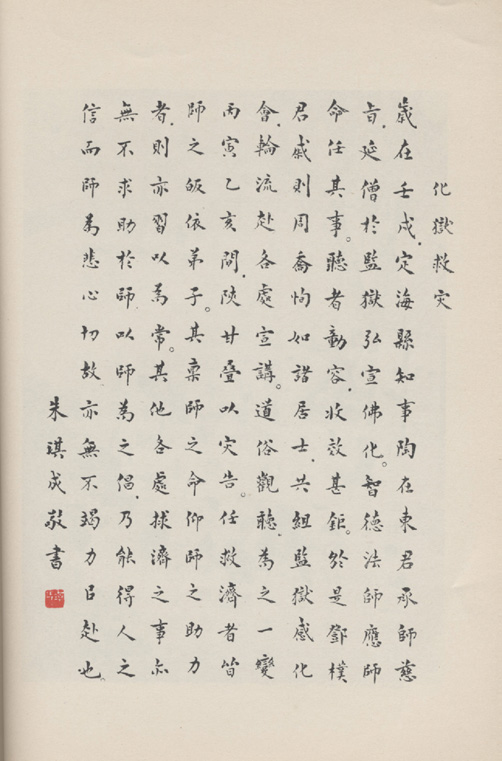 化獄救灾
歲在壬戌.定海縣知事陶在東君承師慈
旨.延僧於監獄弘宣佛化。智德法師應師
命任其事。聽者動容.收效甚鉅。於是鄧樸
君戚則周喬恂如諸居士.共組監獄感化
會.輪流赴各處宣講。道俗觀聽.為之一變
丙寅乙亥間.陝甘疊以灾告。任救濟者皆
師之皈依弟子。其稟師之命仰師之助力
者.則亦習以為常。其他各處捄濟之事亦
無不求助於師.以師為之倡.乃能得人之
信而師為悲心切故亦無不竭力以赴也。
朱淇成敬書